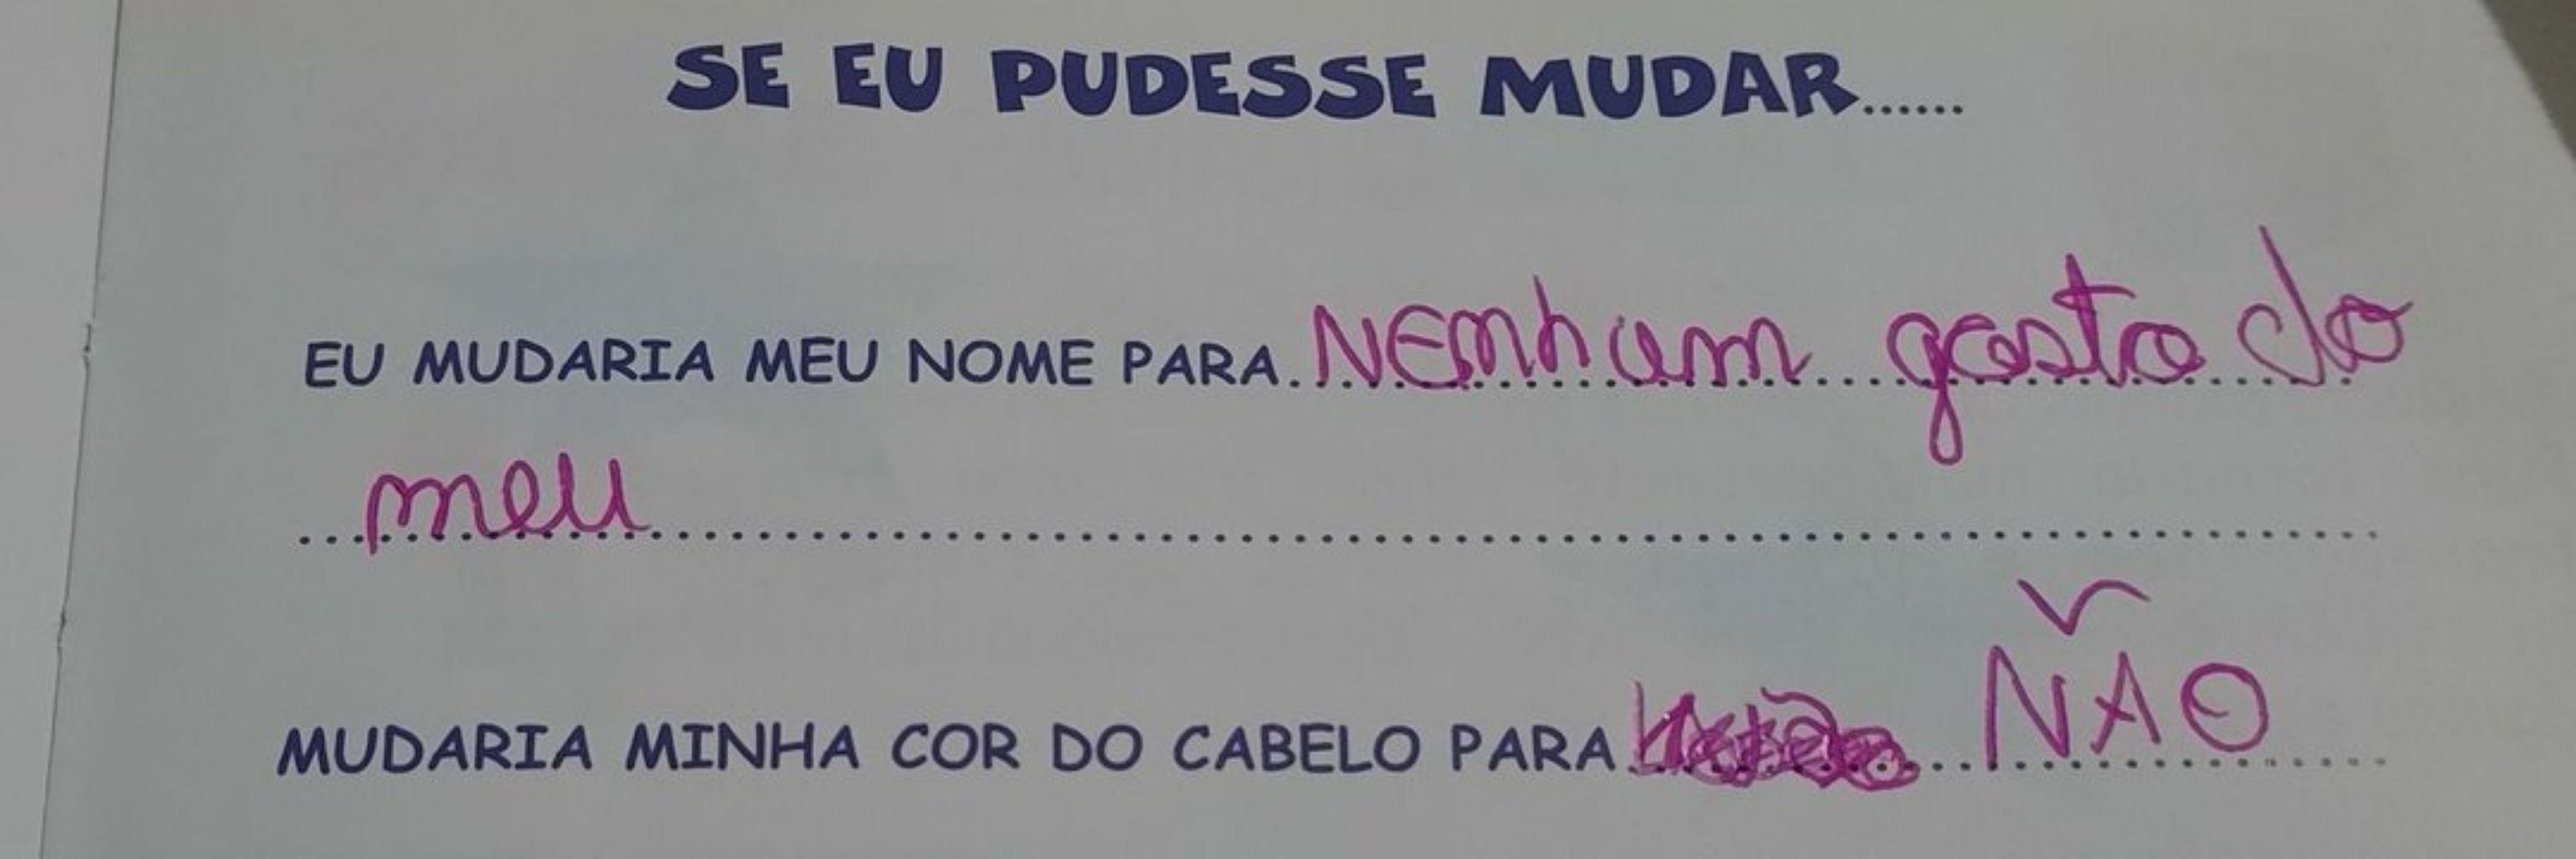 SE EU PUDESSE MUDAR......
EU MUDARIA MEU NOME PARA NEnhum gosto do
meu
MUDARIA MINHA COR DO CABELO PARA NÃO